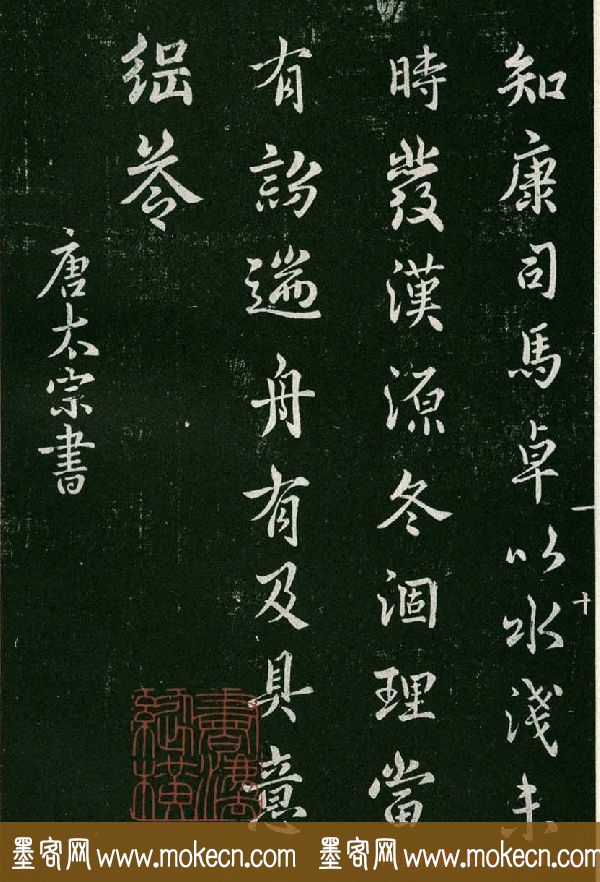 知康司馬卓以水淺未
時發漢源冬涸理當
有詔遄舟有及具意
唐太宗書
十
墨客网 www.mokecn.com 墨客网 www.mokecn.com